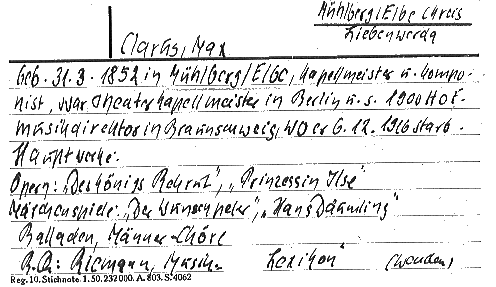 Mühlberg/Elbe Kreis
Liebenwerda
Clarus, Max
Geb. 31.3.1852 in Mühlberg/Elbe, Kapellmeister u. Kompo-
nist, war Theaterkapellmeister in Berlin u. s. 1900 Hof-
musikdirektor in Braunschweig, wo er 6.12.1916 starb.
Hauptwerke:
Opern: „Des Königs Rekrut", „Prinzessin Ilse"
Märchenspiele: „Der Wunschpeter", „Hans Däumling"
Balladen, Männer-Chöre
Riemann, Musik- Lexikon" (wenden)
Reg. 10. Stichnote. 1. 50. 232000. A. 803. S. 4062